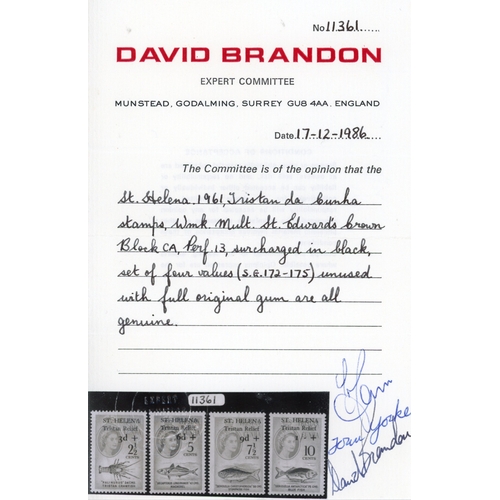 No 11361
DAVID BRANDON
EXPERT COMMITTEE
MUNSTEAD, GODALMING, SURREY GU8 4AA, ENGLAND
Date 17-12-1986
The Committee is of the opinion that the
St. Helena, 1961, Tristan da Cunha
stamps, Wmk. Mult. St. Edward's Crown
Block CA, Perf. 13, surcharged in black,
set of four values (S.G. 172-175) unused
with full original gum are all
genuine.
11361
ST. HELENA ST. HELENA ST. HELENA ST. HELENA
Tristan Relief Tristan Relief Tristan Relief Tristan Relief
3d + 6d + 9d + +
2½ 5 7½ 10
CENTS CENTS CENTS CENTS
TRISTAN DA CUNHA TRISTAN DA CUNHA TRISTAN DA CUNHA TRISTAN DA CUNHA
David Brandon